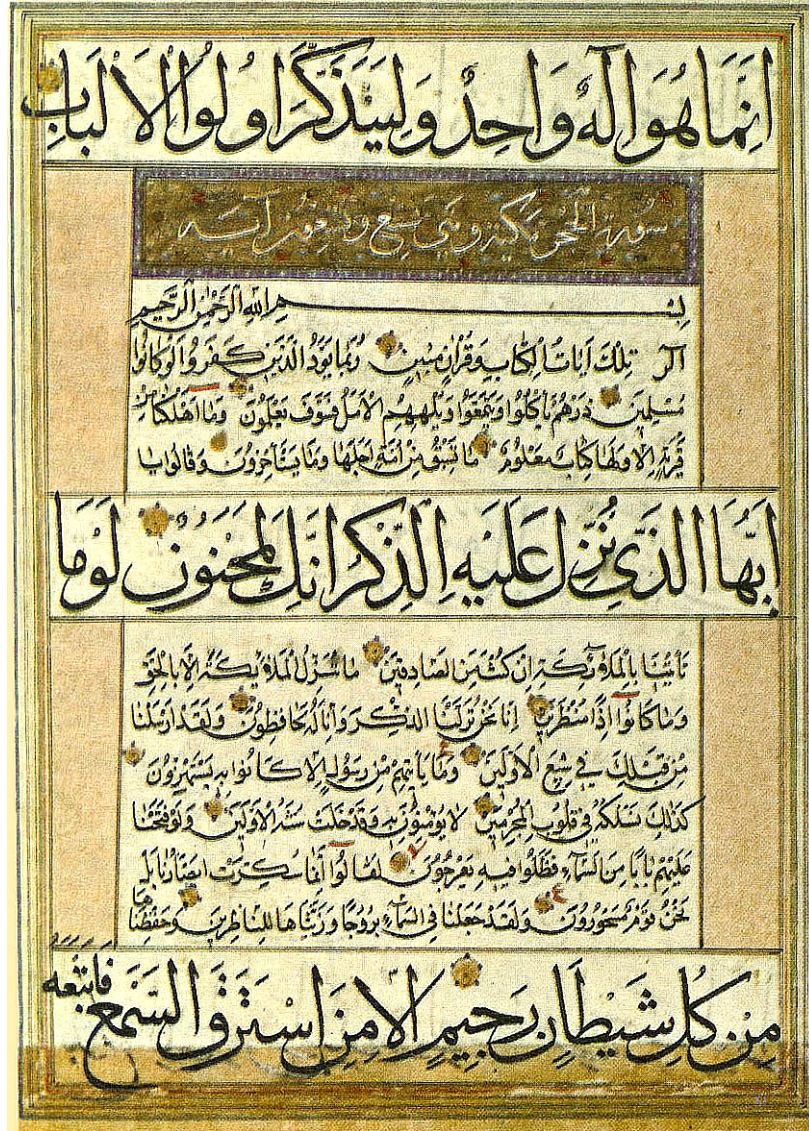 اِنَّمَا هُوَ اِلٰهٌ وَاحِدٌ وَلِيَذَّكَّرَ اُولُوا الْاَلْبَابِ
سورة الحجر مكية وهي تسع وتسعون آية
بِسْمِ اللّٰهِ الرَّحْمٰنِ الرَّحِيمِ
الٓر تِلْكَ اٰيَاتُ الْكِتَابِ وَقُرْاٰنٍ مُبِينٍ رُبَمَا يَوَدُّ الَّذِينَ كَفَرُوا لَوْ كَانُوا
مُسْلِمِينَ ذَرْهُمْ يَأْكُلُوا وَيَتَمَتَّعُوا وَيُلْهِهِمُ الْاَمَلُ فَسَوْفَ يَعْلَمُونَ وَمَا اَهْلَكْنَا مِنْ
قَرْيَةٍ اِلَّا وَلَهَا كِتَابٌ مَعْلُومٌ مَا تَسْبِقُ مِنْ اُمَّةٍ اَجَلَهَا وَمَا يَسْتَأْخِرُونَ وَقَالُوا يَا
اَيُّهَا الَّذِي نُزِّلَ عَلَيْهِ الذِّكْرُ اِنَّكَ لَمَجْنُونٌ لَوْ مَا
تَأْتِينَا بِالْمَلَائِكَةِ اِنْ كُنْتَ مِنَ الصَّادِقِينَ مَا نُنَزِّلُ الْمَلَائِكَةَ اِلَّا بِالْحَقِّ
وَمَا كَانُوا اِذًا مُنْظَرِينَ اِنَّا نَحْنُ نَزَّلْنَا الذِّكْرَ وَاِنَّا لَهُ لَحَافِظُونَ وَلَقَدْ اَرْسَلْنَا
مِنْ قَبْلِكَ فِي شِيَعِ الْاَوَّلِينَ وَمَا يَأْتِيهِمْ مِنْ رَسُولٍ اِلَّا كَانُوا بِهِ يَسْتَهْزِؤُنَ
كَذٰلِكَ نَسْلُكُهُ فِي قُلُوبِ الْمُجْرِمِينَ لَا يُؤْمِنُونَ بِهِ وَقَدْ خَلَتْ سُنَّةُ الْاَوَّلِينَ وَلَوْ فَتَحْنَا
عَلَيْهِمْ بَابًا مِنَ السَّمَاءِ فَظَلُّوا فِيهِ يَعْرُجُونَ لَقَالُوا اِنَّمَا سُكِّرَتْ اَبْصَارُنَا بَلْ
نَحْنُ قَوْمٌ مَسْحُورُونَ وَلَقَدْ جَعَلْنَا فِي السَّمَاءِ بُرُوجًا وَزَيَّنَّاهَا لِلنَّاظِرِينَ وَحَفِظْنَاهَا
مِنْ كُلِّ شَيْطَانٍ رَجِيمٍ اِلَّا مَنِ اسْتَرَقَ السَّمْعَ فَاَتْبَعَهُ